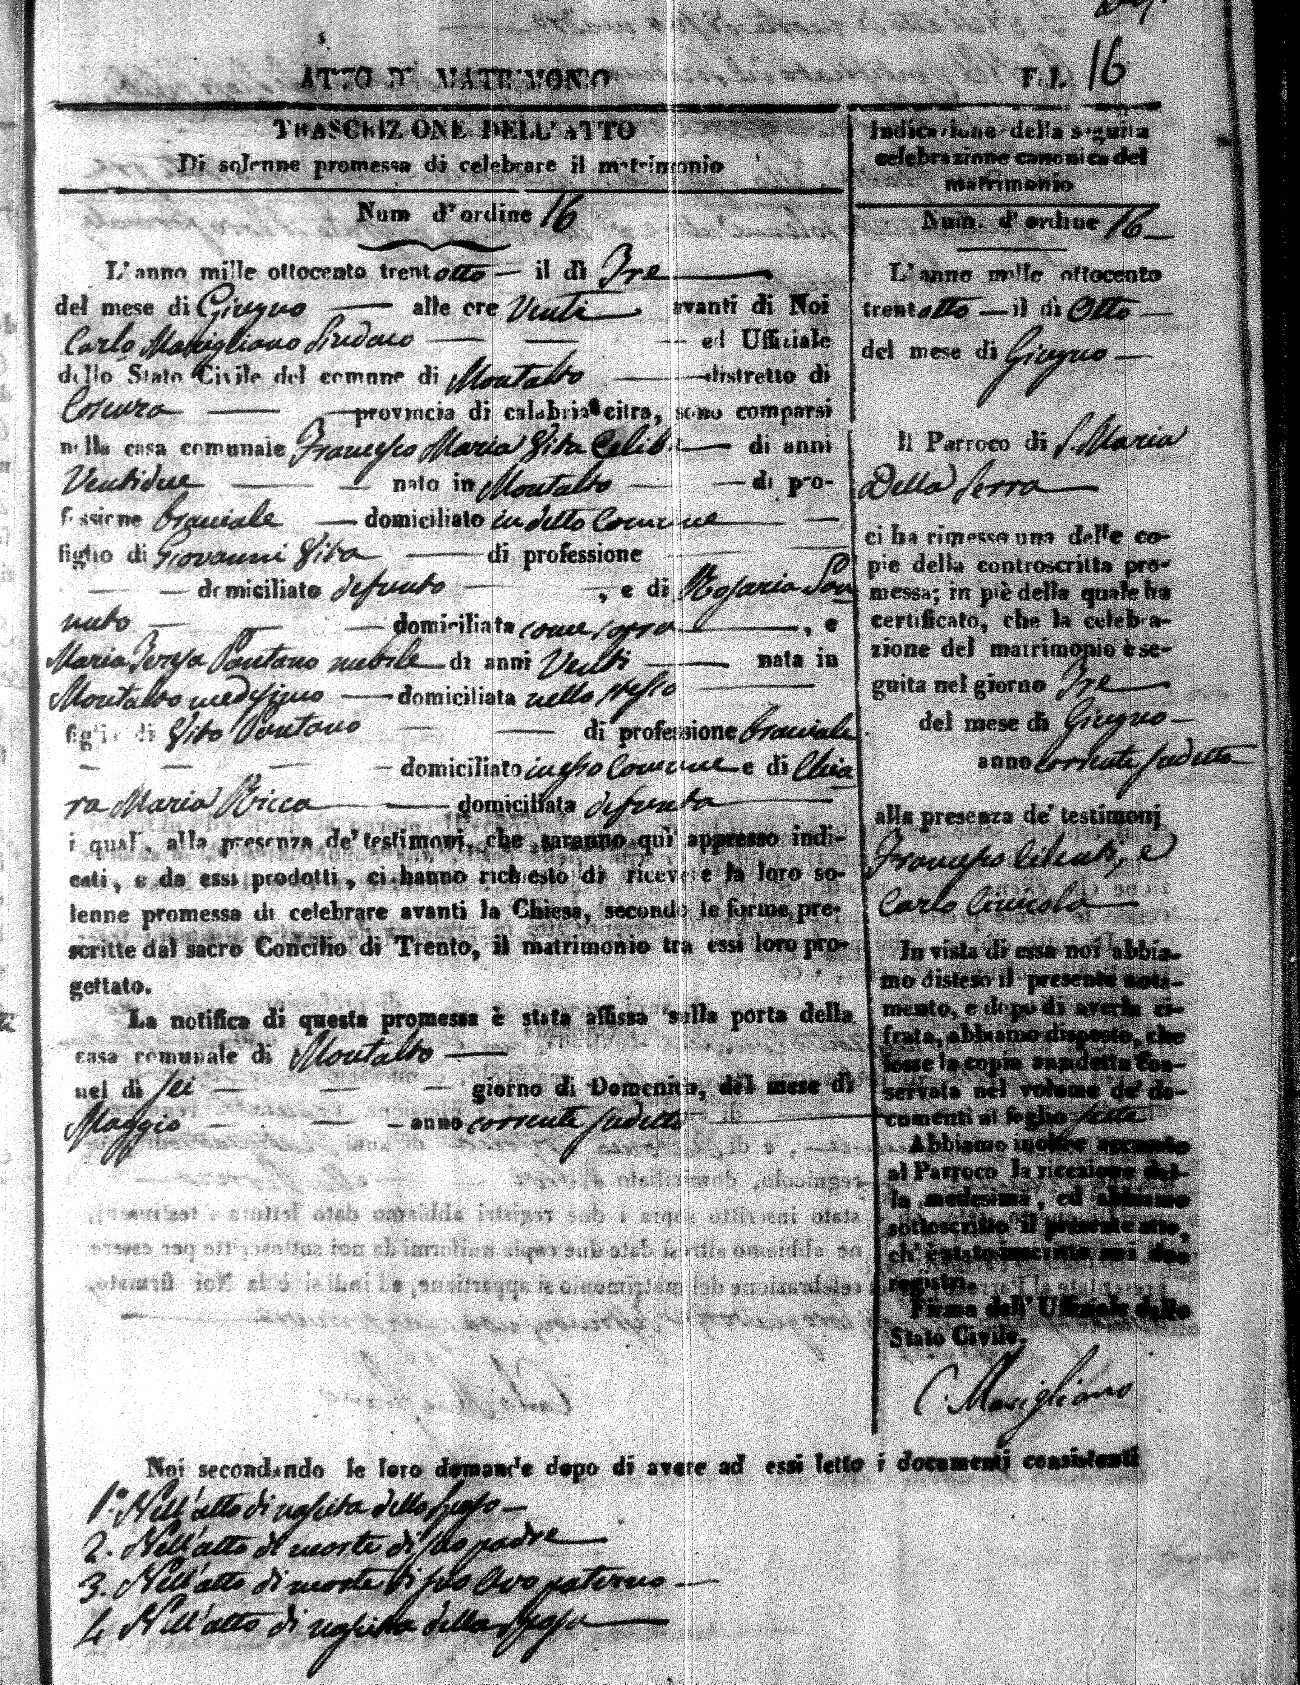 ATTO DI MATRIMONIO
F. I. 16
TRASCRIZIONE DELL'ATTO
Di solenne promessa di celebrare il matrimonio
Num d'ordine 16
L'anno mille ottocento trentotto — il dì Tre
del mese di Giugno — alle ore Venti avanti di Noi
Carlo Marigliano Sindaco — — — ed Ufficiale
dello Stato Civile del comune di Montalto — distretto di
Cosenza — provincia di calabria citra, sono comparsi
nella casa comunale Francesco Maria Vita Celibe — di anni
Ventidue — — nato in Montalto — — di pro-
fessione bracciale — domiciliato in detto Comune —
figlio di Giovanni Vita — di professione —
— — domiciliato defunto — , e di Rosaria
— — domiciliata come sopra — , e
Maria Teresa Pantano nubile di anni Venti — nata in
Montalto medesimo — domiciliata nello stesso —
figlia di Vito Pantano — — di professione bracciale
— — — — domiciliato in esso Comune e di Chia
ra Maria Ricca — domiciliata defunta —
i quali, alla presenza de' testimonj, che saranno quì appresso indi-
cati, e da essi prodotti, ci hanno richiesto di ricevere la loro so-
lenne promessa di celebrare avanti la Chiesa, secondo le forme pre-
scritte dal sacro Concilio di Trento, il matrimonio tra essi loro pro-
gettato.
La notifica di questa promessa è stata affissa sulla porta della
casa comunale di Montalto —
nel dì sei — — — giorno di Domenica, del mese di
Maggio — — — anno corrente sudetto —
Indicazione della seguita
celebrazione canonica del
matrimonio
Num. d'ordine 16 —
L'anno mille ottocento
trentotto — il dì Otto —
del mese di Giugno —
Il Parroco di S. Maria
Della Serra —
ci ha rimesso una delle co-
pie della controscritta pro-
messa; in piè della quale ha
certificato, che la celebra-
zione del matrimonio è se-
guita nel giorno Tre —
del mese di Giugno —
anno corrente sudetto
alla presenza de' testimonj
Francesco e
Carlo
In vista di essa noi abbia-
mo disteso il presente nota-
mento, e dopo di averla ci-
frata, abbiamo disposto, che
fosse la copia sandetta con-
servata nel volume de' do-
cumenti al foglio sette
Abbiamo inoltre accusato
al Parroco la ricezione del-
la medesima, ed abbiamo
sottoscritto il presente atto,
ch' è stato inscritto nei due
registri.
Firma dell' Uffiziale dello
Stato Civile.
C. Marigliano
Noi secondando le loro domande dopo di avere ad essi letto i documenti consistenti
1.° Nell'atto di nascita dello sposo —
2. Nell'atto di morte di suo padre —
3. Nell'atto di morte di suo Avo paterno —
4. Nell'atto di nascita della sposa —